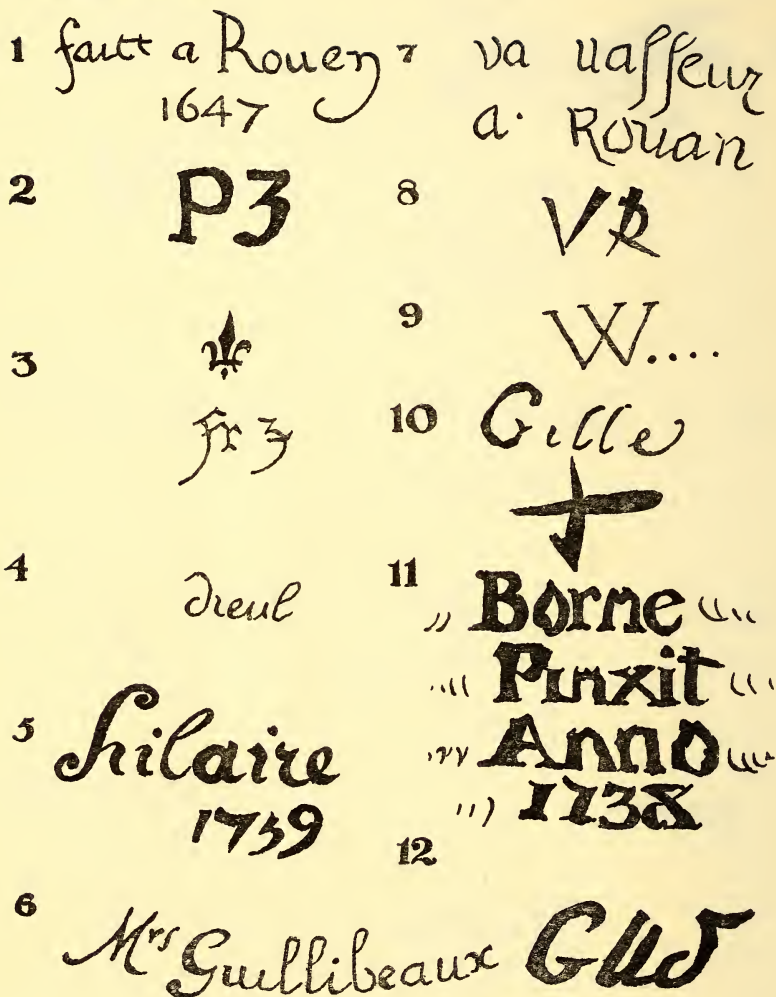 1 faitt a Rouen
1647
2 P3
3
fr 3
4 dieul
5 hilaire
1739
6 Mrs Guillibeaux
7 va uasseur
a. Rouan
8 VR
9 W....
10 Gille
11 Borne
Pinxit
Anno
1738
12 GUS